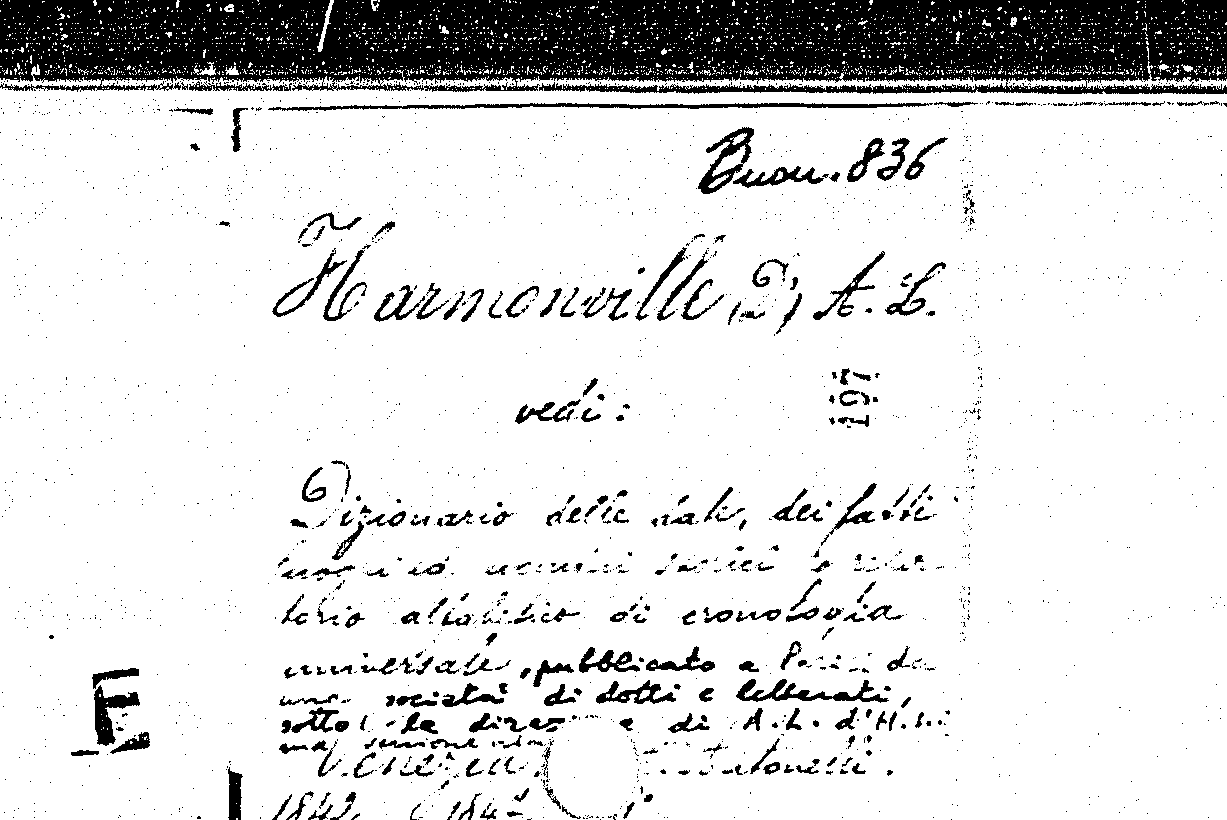 Buon. 836
Harmonville (D') A. L.
197
vedi:
Dizionario delle date, dei fatti
luoghi ed uomini storici o reper-
torio alfabetico di cronologia
universale, pubblicato a Parigi da
una società di dotti e letterati,
sotto la direzione di A. L. d'H.
Venezia, Antonelli.
1842 1847
E